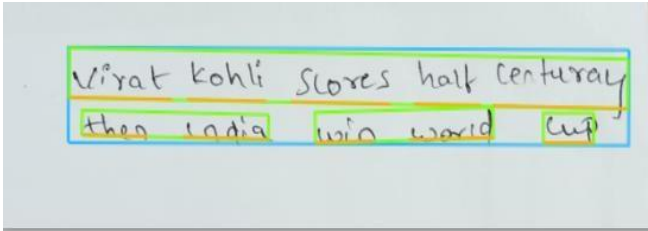 Virat Kohli Scores half Centuray
then india win world cup